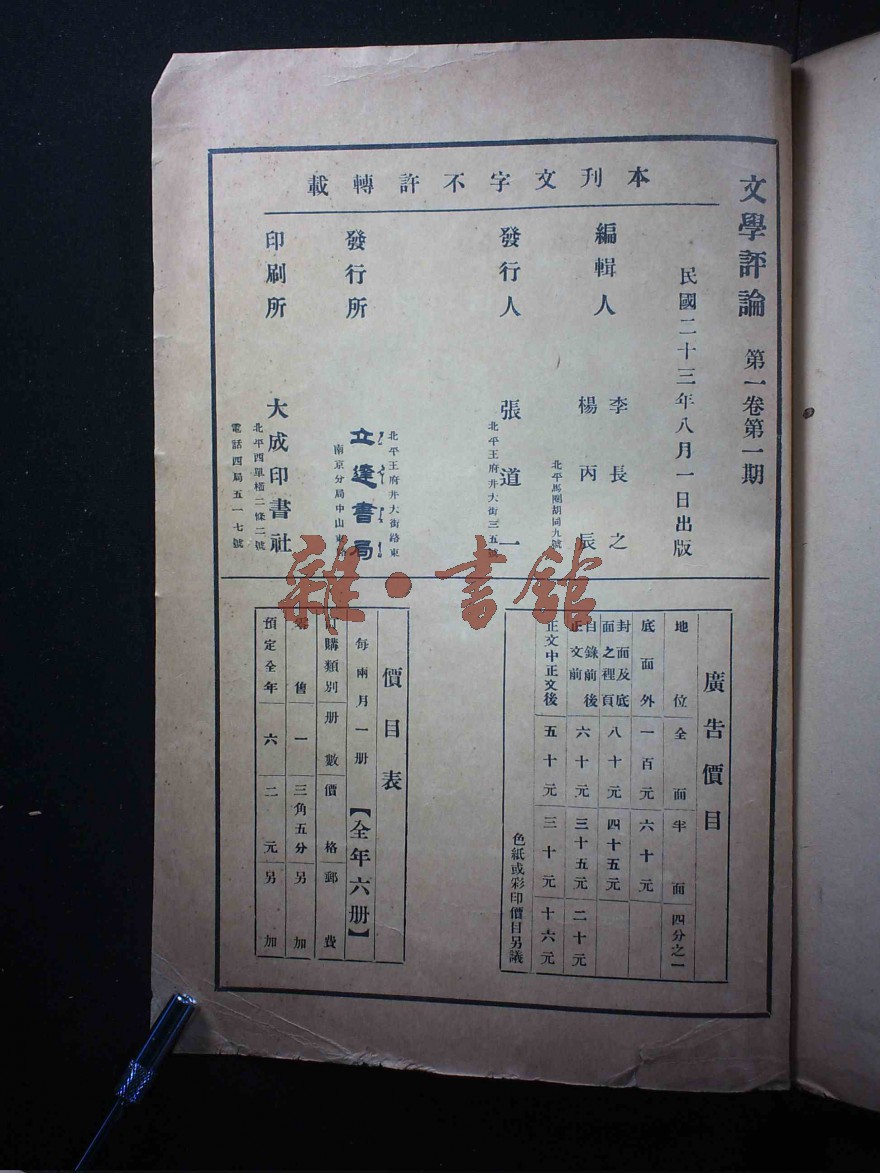 文學評論 第一卷第一期
民國二十三年八月一日出版
本刊文字不許轉載
編輯人
李長之
楊丙辰
北平馬圈胡同九號
發行人
張道一
北平王府井大街三五號
發行所
北平王府井大街路東
立達書局
南京分局中山東路
印刷所
大成印書社
北平西單橫二條二號
電話西局五一七號
雜·書館
廣告價目
地位 全面 半面 四分之一
底面外 一百元 六十元
封面及底面之裡頁 八十元 四十五元
目錄前後正文前 六十元 三十五元 二十元
正文中正文後 五十元 三十元 十六元
色紙或彩印價目另議
價目表
每兩月一册 【全年六册】
訂購類別 册數 價格 郵費
零售 一 三角五分 另加
預定全年 六 二元 另加